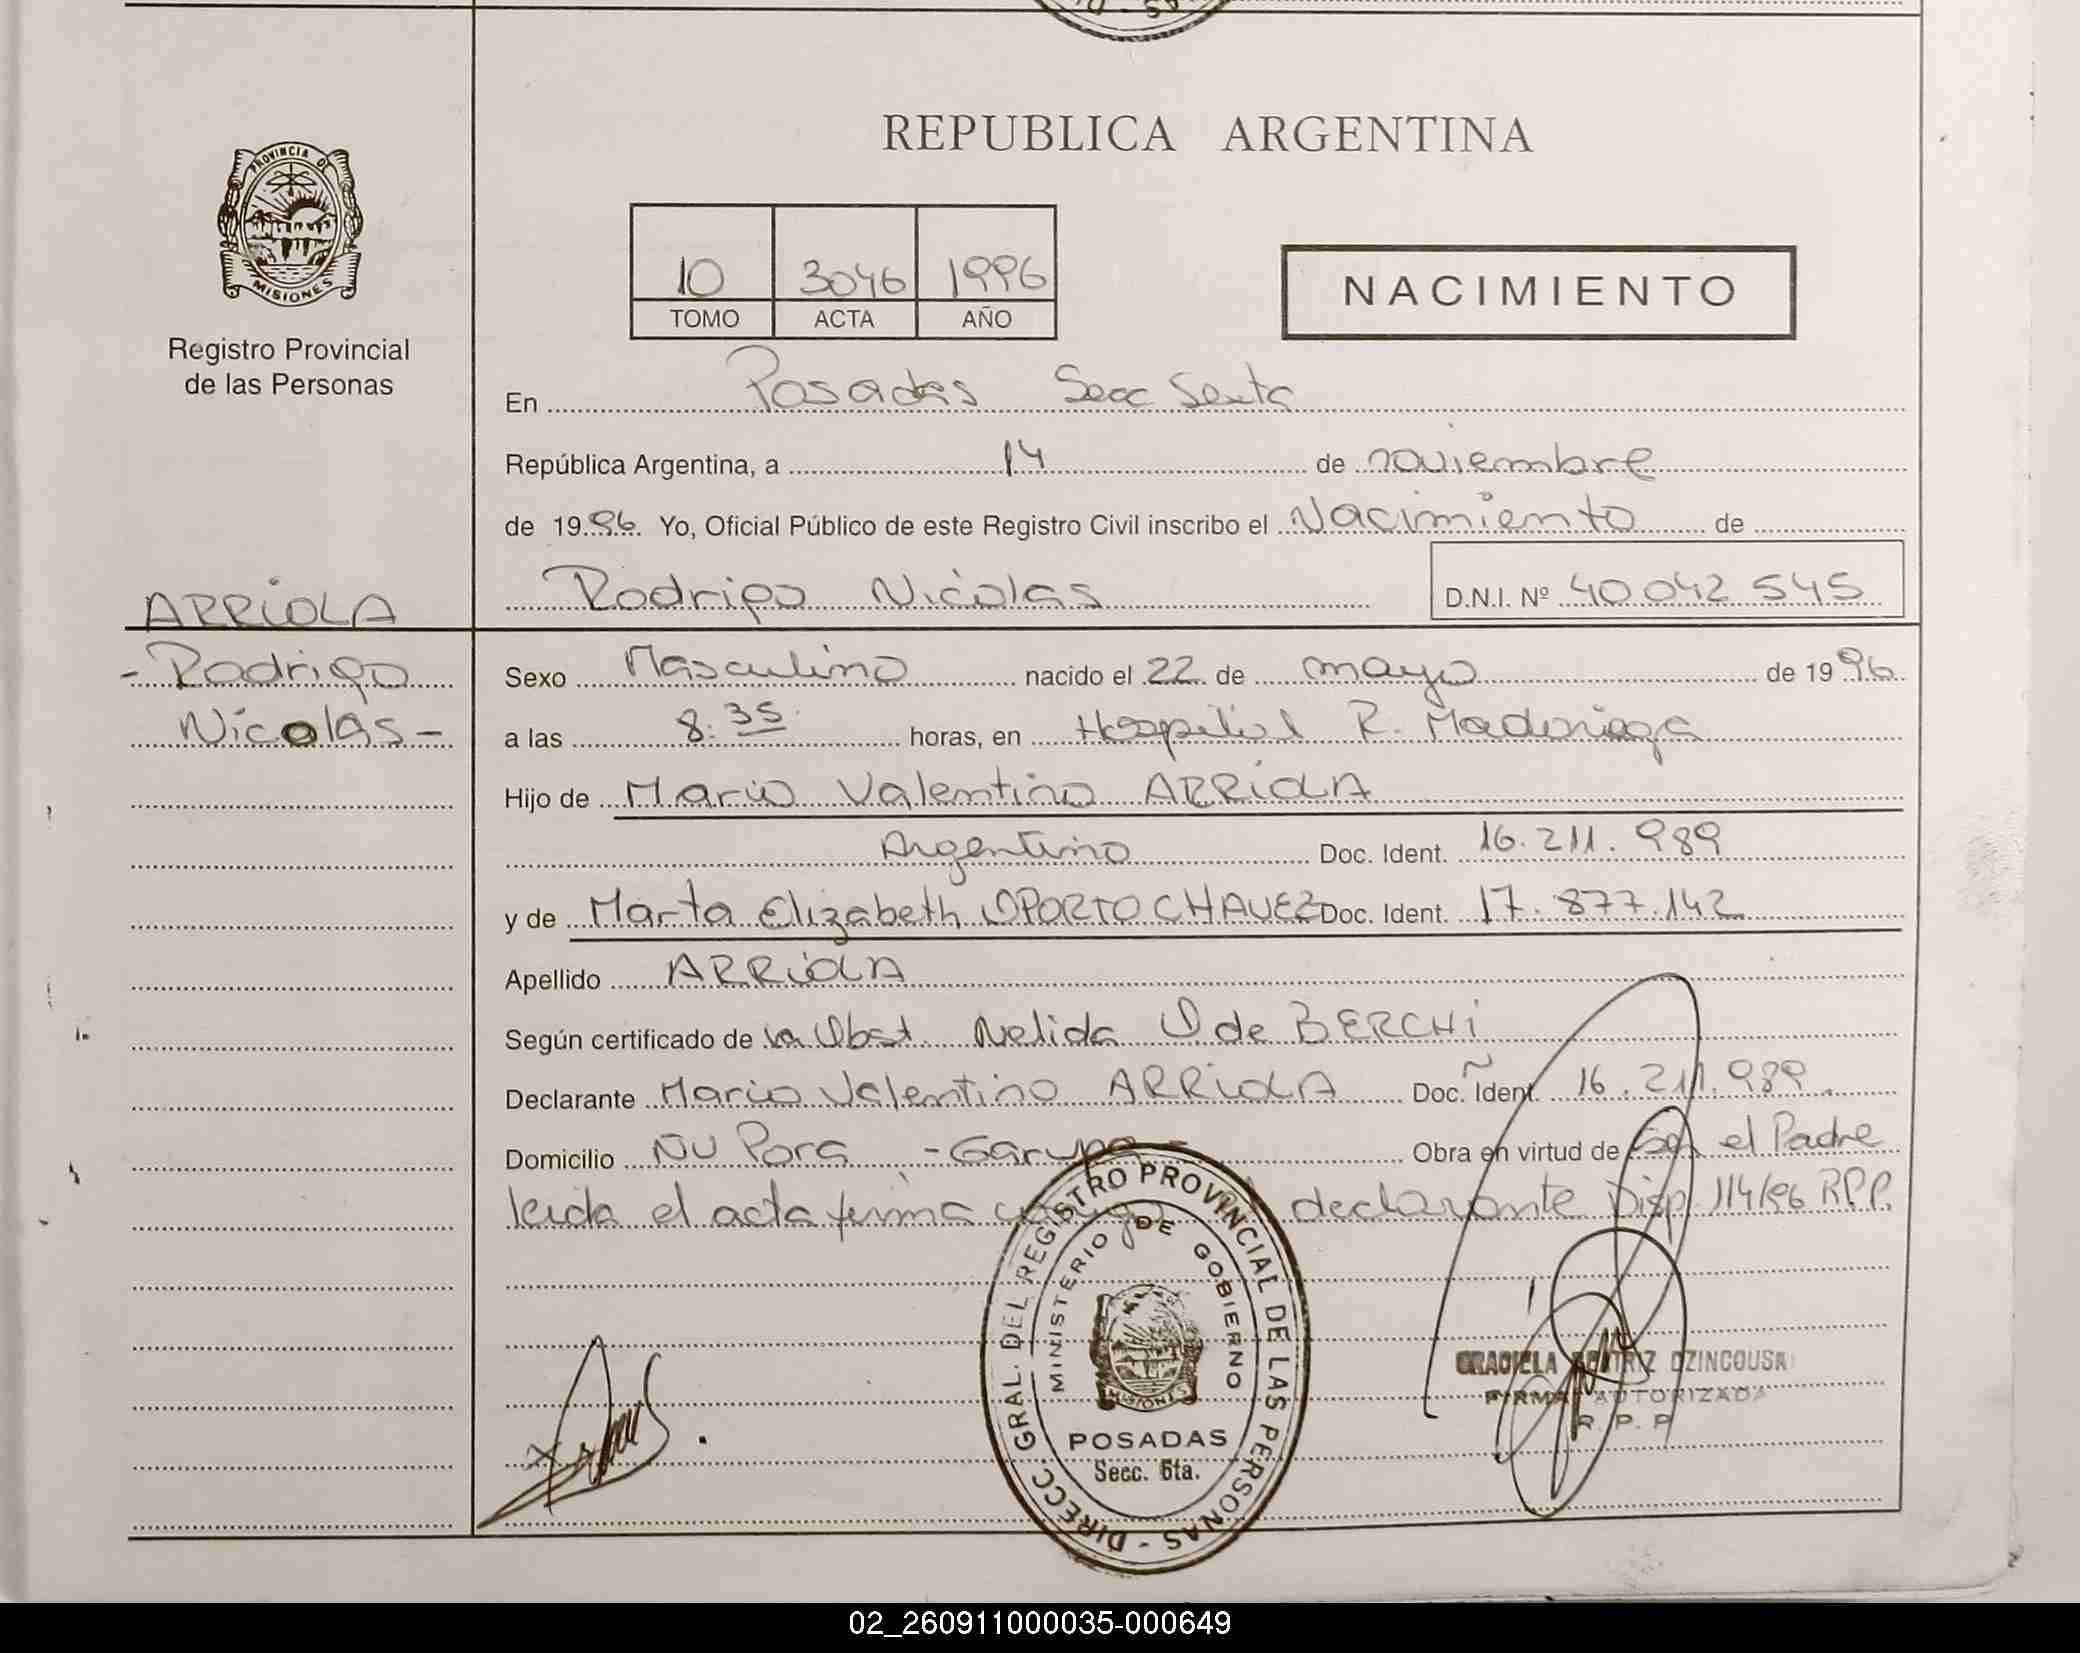 REPUBLICA ARGENTINA
PROVINCIA DE
MISIONES
Registro Provincial
de las Personas
10 3046 1996
TOMO ACTA AÑO
NACIMIENTO
En Posadas Secc Sexta
República Argentina, a 14 de noviembre
de 1996 Yo, Oficial Público de este Registro Civil inscribo el Nacimiento de
Rodrigo Nicolas D.N.I. Nº 40042545
ARRIOLA
- Rodrigo
Nicolas -
Sexo Masculino nacido el 22 de mayo de 1996
a las 8:35 horas, en Hospital R. Madariaga
Hijo de Mario Valentino ARRIOLA
Argentino Doc. Ident. 16.211.989
y de Marta Elizabeth OPORTO CHAVEZ Doc. Ident. 17.877.142
Apellido ARRIOLA
Según certificado de la Obst. Nelida O de BERCHI
Declarante Mario Valentino ARRIOLA Doc. Ident. 16.211.989
Domicilio ÑU Pora - Garupa - Obra en virtud de Ser el Padre
leida el acta firma declarante Disp. 114/96 R.P.P.
DIRECC. GRAL. DEL REGISTRO PROVINCIAL DE LAS PERSONAS -
MINISTERIO DE GOBIERNO
MISIONES
POSADAS
Secc. 6ta.
GRACIELA BEATRIZ DZINCOUSA
FIRMA AUTORIZADA
R. P. P.
02_260911000035-000649